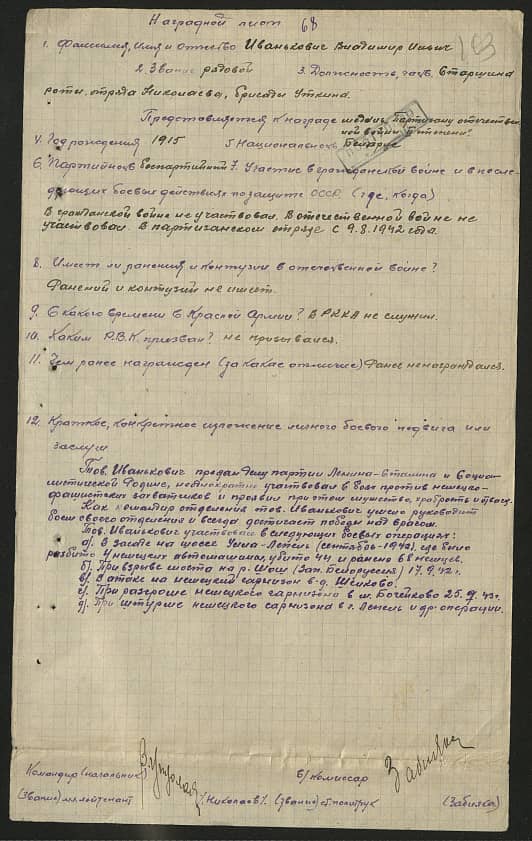 Наградной лист 68
1. Фамилия, имя и отчество Иванькович Владимир Ильич
2. Звание рядовой 3. Должность, часть Старшина
роты, отряда Николаева, бригады Уткина.
Представляется к награде медаль „Партизану отечествен-
ной войны" II степени.
4. Год рождения 1915 5. Национальность Беларус
6. Партийность беспартийный 7. Участие в гражданской войне и в после-
дующих боевых действиях по защите СССР (где, когда)
В гражданской войне не участвовал. В отечественной войне не
участвовал. В партизанском отряде с 9.8.1942 года.
8. Имеет ли ранения и контузии в отечественной войне?
Ранений и контузий не имеет.
9. С какого времени в Красной Армии? В РККА не служил.
10. Каким Р.В.К. призван? Не призывался.
11. Чем ранее награжден (за какие отличия) Ранее не награждался.
12. Краткое, конкретное изложение личного боевого подвига или
заслуги
Тов. Иванькович предан делу партии Ленина-Сталина и Социа-
листической Родине, неоднократно участвовал в боях против немецко-
фашистских захватчиков и проявил при этом мужество, храбрость и отвагу.
Как командир отделения тов. Иванькович умело руководит
боем своего отделения и всегда достигает победы над врагом.
Тов. Иванькович участвовал в следующих боевых операциях:
а). В засаде на шоссе Улла-Лепель (сентябрь-1942), где было
разбито 4 немецких автомашины, убито 44 и ранено 68 немцев.
б). При взрыве моста на р. (Зап. Белоруссия) 17.9.42 г.
в). В атаке на немецкий гарнизон в д.
г). При разгроме немецкого гарнизона в м. Бочейково 25.9.43 г.
д). При штурме немецкого гарнизона в г. Лепель и др. операции.
Командир (начальник) Комиссар
(Звание) мл. лейтенант /Николаев/. (Звание) ст. политрук (Забияка)